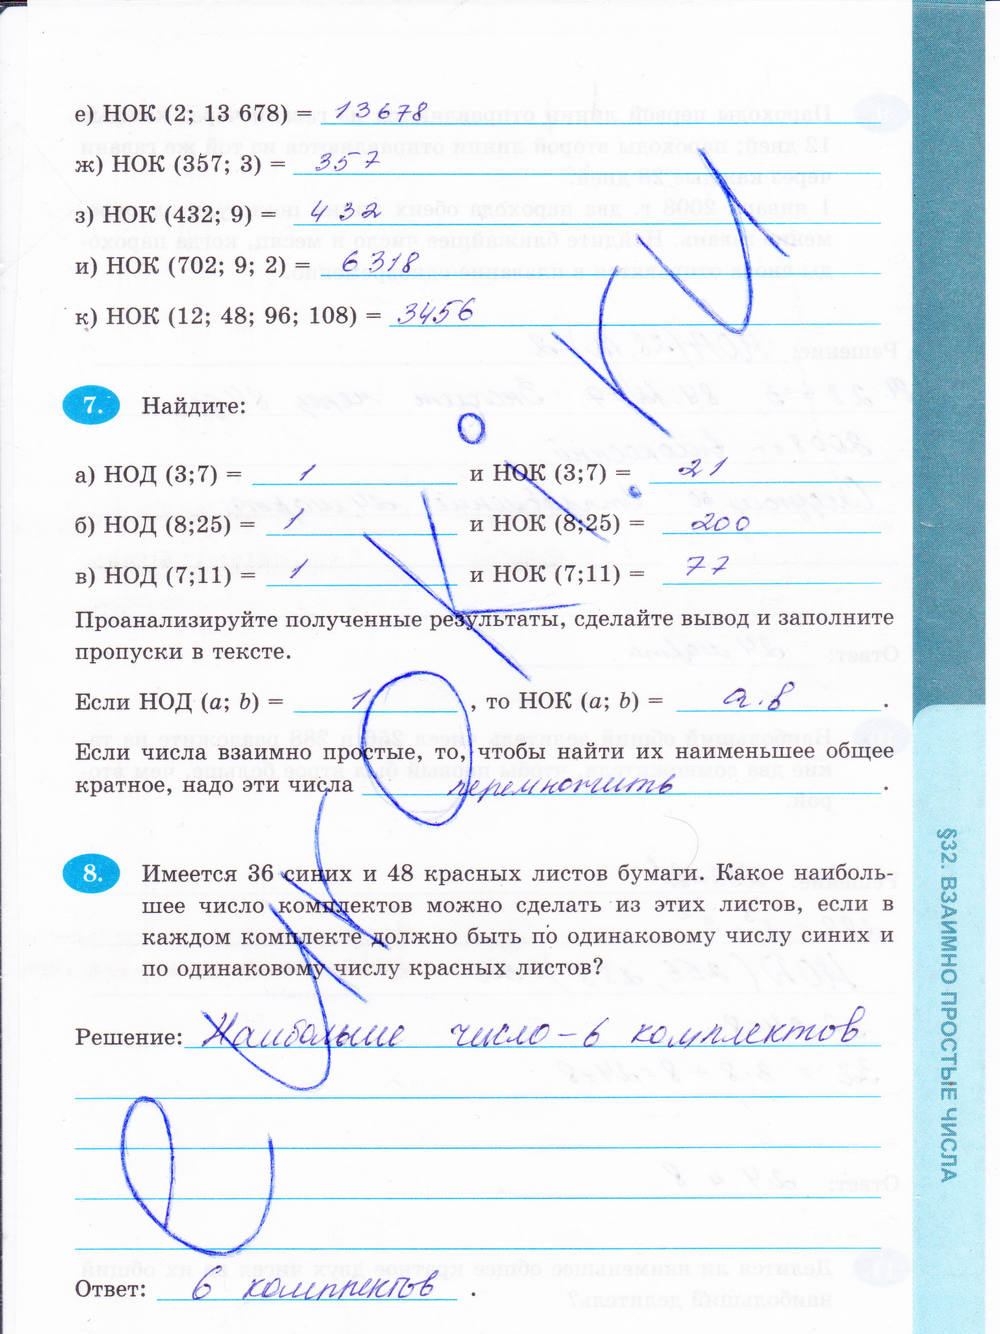 е) НОК (2; 13 678) = 13678
ж) НОК (357; 3) = 357
з) НОК (432; 9) = 432
и) НОК (702; 9; 2) = 6318
к) НОК (12; 48; 96; 108) = 3456
7. Найдите:
а) НОД (3;7) = 1 и НОК (3;7) = 21
б) НОД (8;25) = 1 и НОК (8;25) = 200
в) НОД (7;11) = 1 и НОК (7;11) = 77
Проанализируйте полученные результаты, сделайте вывод и заполните
пропуски в тексте.
Если НОД (a; b) = 1, то НОК (a; b) = а·в.
Если числа взаимно простые, то, чтобы найти их наименьшее общее
кратное, надо эти числа перемножить.
8. Имеется 36 синих и 48 красных листов бумаги. Какое наиболь-
шее число комплектов можно сделать из этих листов, если в
каждом комплекте должно быть по одинаковому числу синих и
по одинаковому числу красных листов?
Решение: Наибольшие число – 6 комплектов
Ответ: 6 комплектов.
§32. ВЗАИМНО ПРОСТЫЕ ЧИСЛА